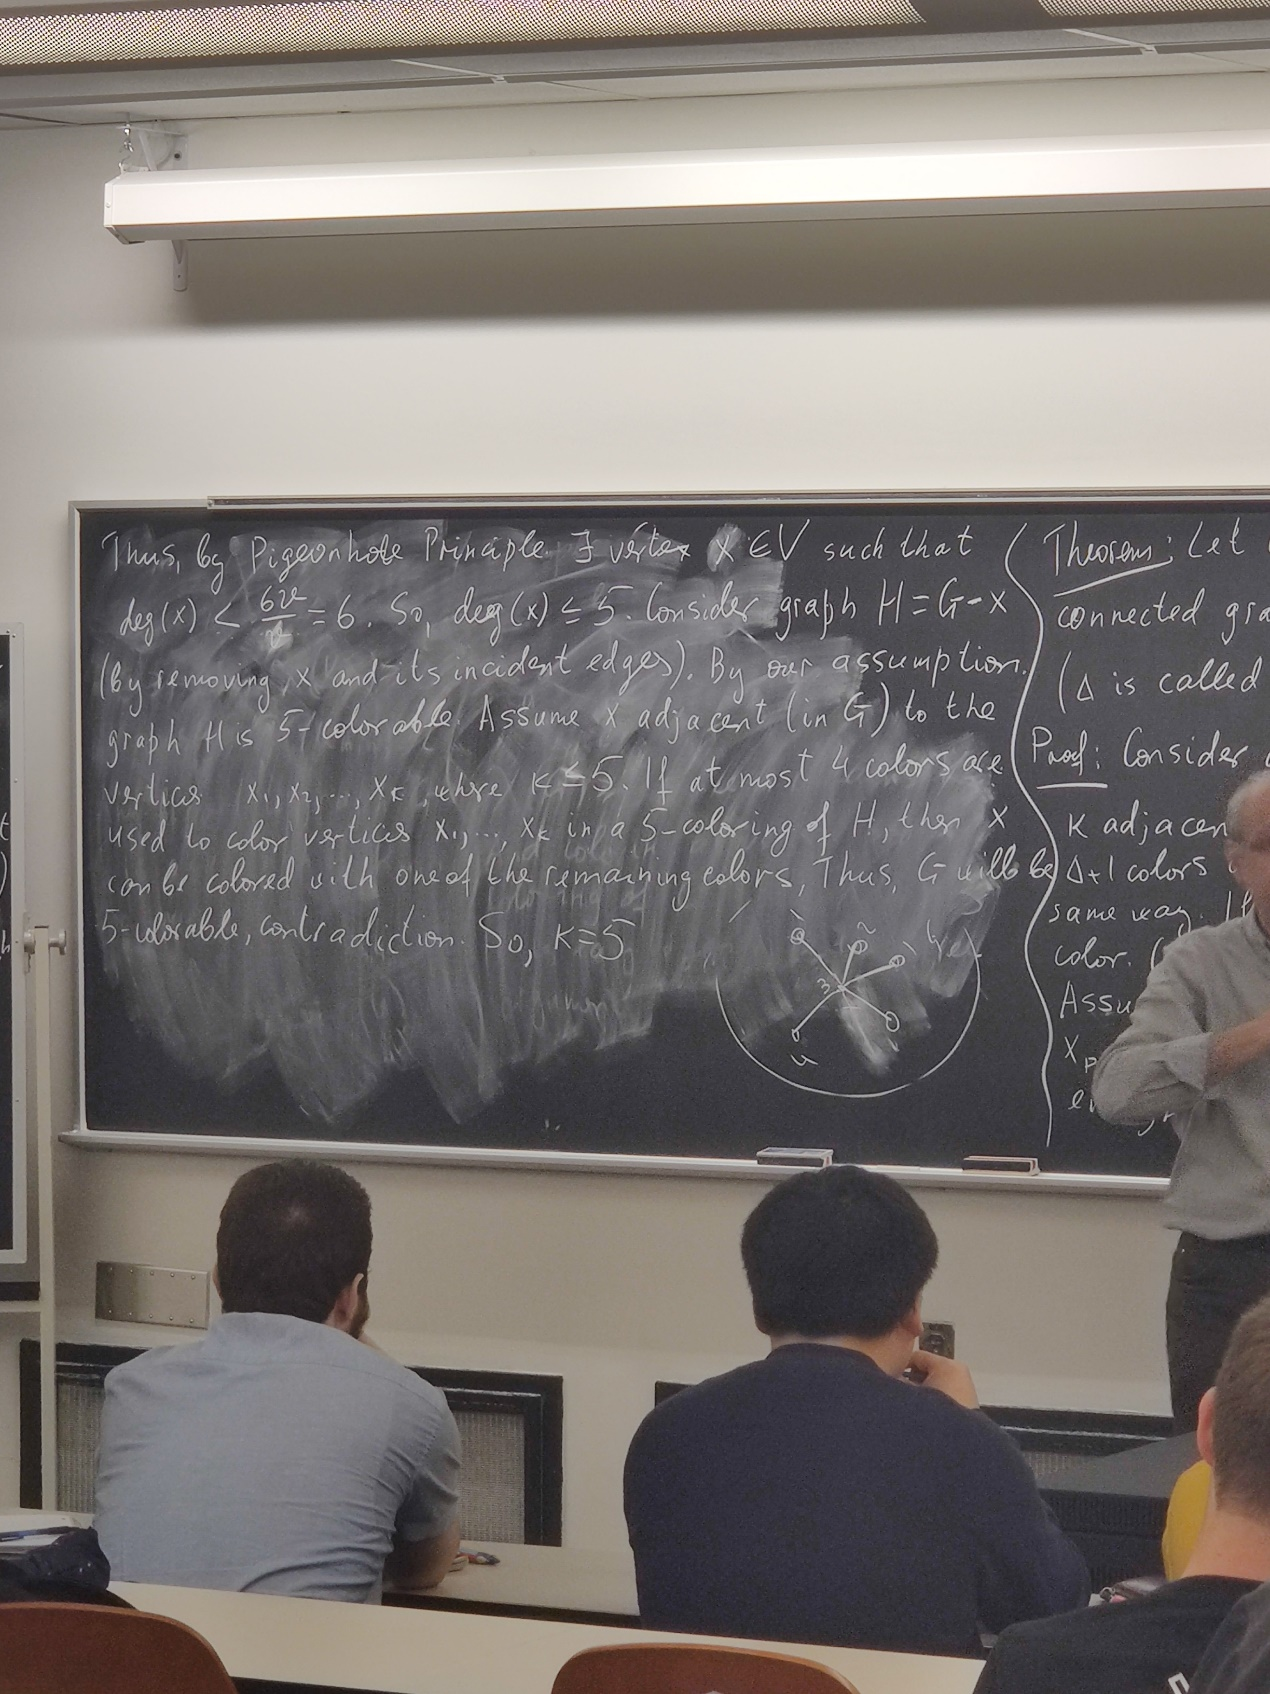 Thus, by Pigeonhole Principle ∃ vertex x ∈ V such that
deg(x) < 6v/v = 6. So, deg(x) ≤ 5. Consider graph H = G-x
(by removing x and its incident edges). By our assumption,
graph H is 5-colorable. Assume x adjacent (in G) to the
vertices x₁, x₂, ..., xₖ, where k ≤ 5. If at most 4 colors are
used to color vertices x₁, ..., xₖ in a 5-coloring of H, then x
can be colored with one of the remaining colors, Thus, G will be
5-colorable, contradiction. So, k = 5
Theorem: Let
connected
(Δ is called
Proof: Consider
k
Δ+1 colors
same way.
color.